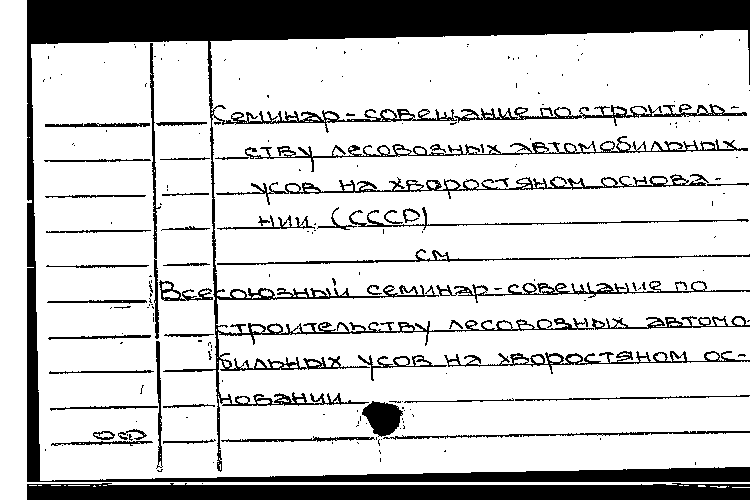 Семинар-совещание по строитель-
ству лесовозных автомобильных
усов на хворостяном основа-
нии. (СССР)
см
Всесоюзный семинар-совещание по
строительству лесовозных автомо-
бильных усов на хворостяном ос-
новании.